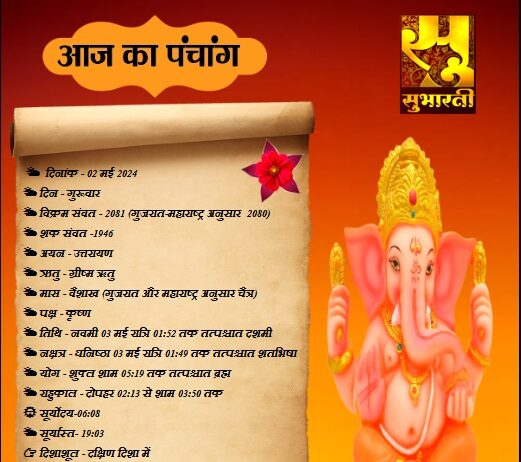 आज का पंचांग
सुभारती
दिनांक - 02 मई 2024
दिन - गुरूवार
विक्रम संवत - 2081 (गुजरात-महाराष्ट्र अनुसार 2080)
शक संवत -1946
अयन - उत्तरायण
ऋतु - ग्रीष्म ऋतु
मास - वैशाख (गुजरात और महाराष्ट्र अनुसार चैत्र)
पक्ष - कृष्ण
तिथि - नवमी 03 मई रात्रि 01:52 तक तत्पश्चात दशमी
नक्षत्र - धनिष्ठा 03 मई रात्रि 01:49 तक तत्पश्चात शतभिषा
योग - शुक्ल शाम 05:19 तक तत्पश्चात ब्रह्म
राहुकाल - दोपहर 02:13 से शाम 03:50 तक
सूर्योदय-06:08
सूर्यास्त- 19:03
दिशाशूल - दक्षिण दिशा में